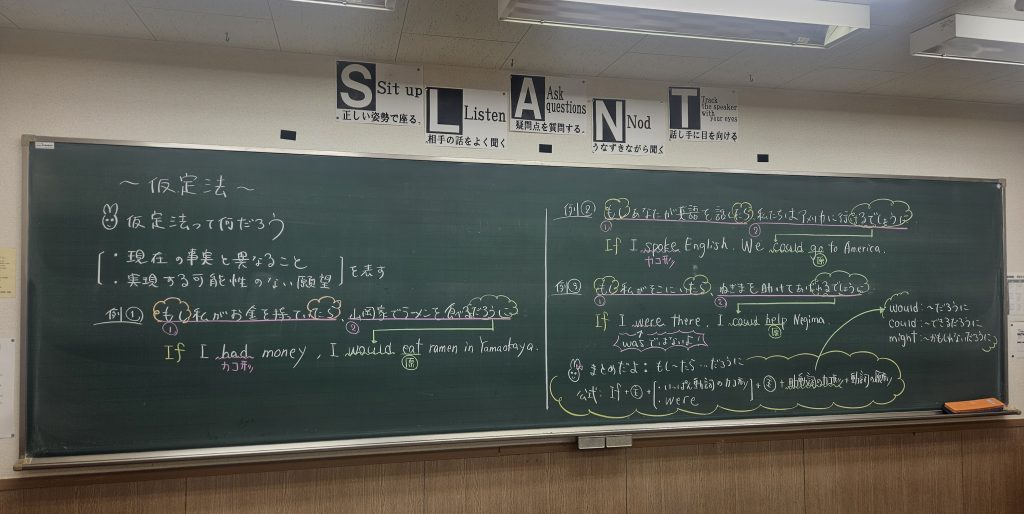 S Sit up
正しい姿勢で座る.
L Listen
相手の話をよく聞く
A Ask questions
疑問点を質問する.
N Nod
うなずきながら聞く
T Track the speaker with your eyes
話し手に目を向ける
～仮定法～
仮定法って何だろう
・現在の事実と異なること
・実現する可能性のない願望
を表す
例① もし私がお金を持っていたら、山岡家でラーメンを食べるだろうに
① ②
If I had money, I would eat ramen in Yamaokaya.
カコ形 原
例② もしあなたが英語を話したら 私たちはアメリカに行けるでしょうに
① ②
If I spoke English. We could go to America.
カコ形 原
例③ もし私がそこにいたら、ねぎまを助けてあげれるでしょうに
① ②
If I were there, I could help Negima.
wasではない! 原
would:〜だろうに
could:〜できるだろうに
might:〜かもしれないだろうに
まとめだよ:もし〜たら…だろうに
公式:If+①+ ・いっぱん動詞のカコ形 +②+助動詞のカコ形+動詞の原形
・were